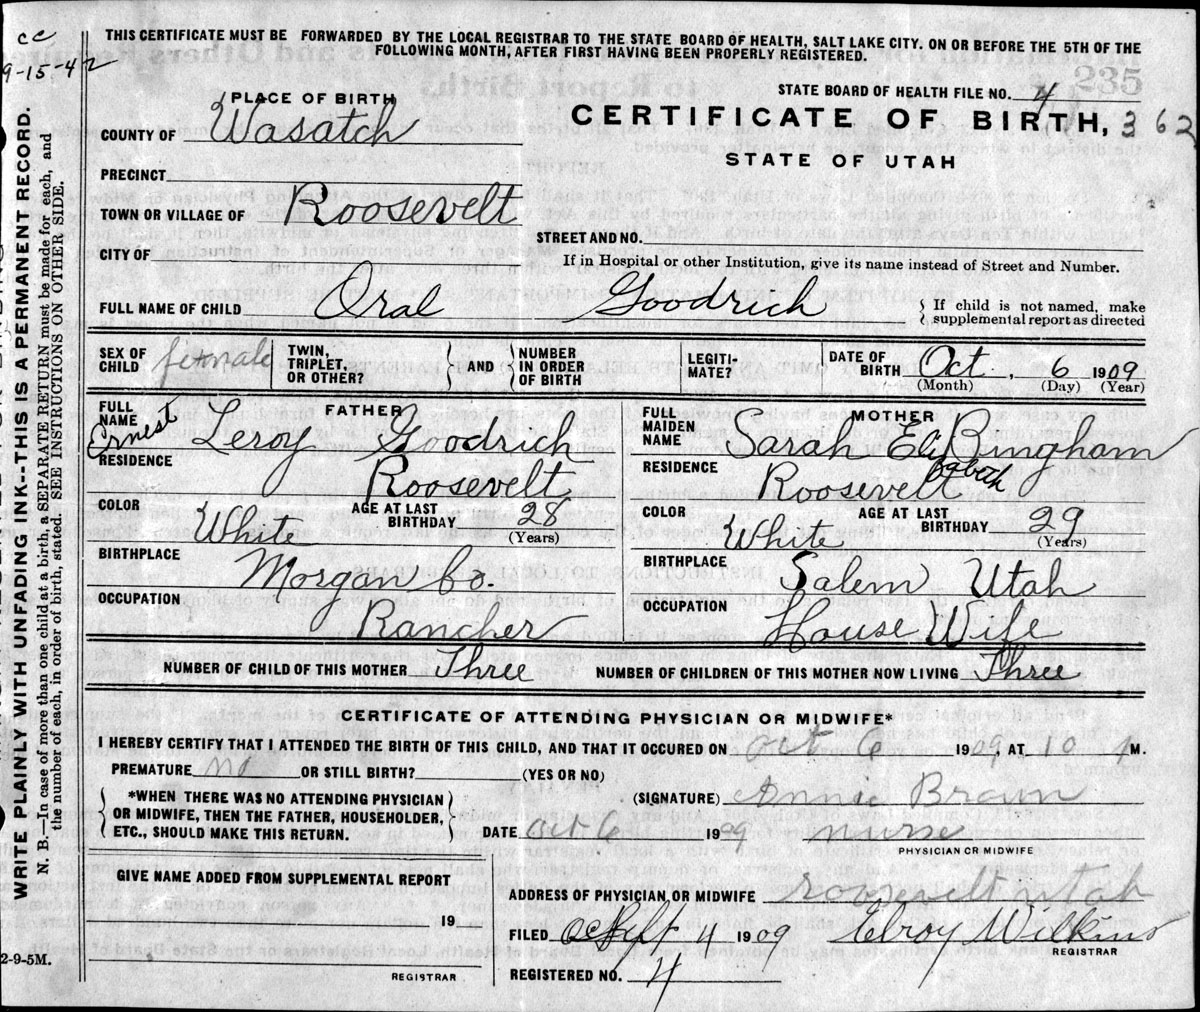 cc
9-15-42
THIS CERTIFICATE MUST BE FORWARDED BY THE LOCAL REGISTRAR TO THE STATE BOARD OF HEALTH, SALT LAKE CITY. ON OR BEFORE THE 5TH OF THE
FOLLOWING MONTH, AFTER FIRST HAVING BEEN PROPERLY REGISTERED.
235
STATE BOARD OF HEALTH FILE NO. 4
PLACE OF BIRTH
CERTIFICATE OF BIRTH, 362
COUNTY OF Wasatch
STATE OF UTAH
PRECINCT
TOWN OR VILLAGE OF Roosevelt
STREET AND NO.
CITY OF
If in Hospital or other Institution, give its name instead of Street and Number.
FULL NAME OF CHILD Oral Goodrich
If child is not named, make
supplemental report as directed
SEX OF CHILD female
TWIN, TRIPLET, OR OTHER?
AND
NUMBER IN ORDER OF BIRTH
LEGITI-MATE?
DATE OF BIRTH Oct. 6 1909
(Month) (Day) (Year)
FATHER
FULL NAME Ernest Leroy Goodrich
RESIDENCE Roosevelt
COLOR White
AGE AT LAST BIRTHDAY 28
(Years)
BIRTHPLACE Morgan Co.
OCCUPATION Rancher
MOTHER
FULL MAIDEN NAME Sarah Elizabeth Bingham
RESIDENCE Roosevelt
COLOR White
AGE AT LAST BIRTHDAY 29
(Years)
BIRTHPLACE Salem Utah
OCCUPATION House Wife
NUMBER OF CHILD OF THIS MOTHER Three
NUMBER OF CHILDREN OF THIS MOTHER NOW LIVING Three
CERTIFICATE OF ATTENDING PHYSICIAN OR MIDWIFE*
I HEREBY CERTIFY THAT I ATTENDED THE BIRTH OF THIS CHILD, AND THAT IT OCCURED ON Oct 6 1909 AT 10 A M.
PREMATURE no OR STILL BIRTH? (YES OR NO)
*WHEN THERE WAS NO ATTENDING PHYSICIAN
OR MIDWIFE, THEN THE FATHER, HOUSEHOLDER,
ETC., SHOULD MAKE THIS RETURN.
(SIGNATURE) Annie Brown
DATE Oct 6 1909 nurse
PHYSICIAN OR MIDWIFE
GIVE NAME ADDED FROM SUPPLEMENTAL REPORT
19
REGISTRAR
ADDRESS OF PHYSICIAN OR MIDWIFE roosevelt utah
FILED 4 1909 Elroy Wilkins
REGISTRAR
REGISTERED NO. 4
WRITE PLAINLY WITH UNFADING INK--THIS IS A PERMANENT RECORD.
N. B.—In case of more than one child at a birth, a SEPARATE RETURN must be made for each, and
the number of each, in order of birth, stated. SEE INSTRUCTIONS ON OTHER SIDE.
2-9-5M.